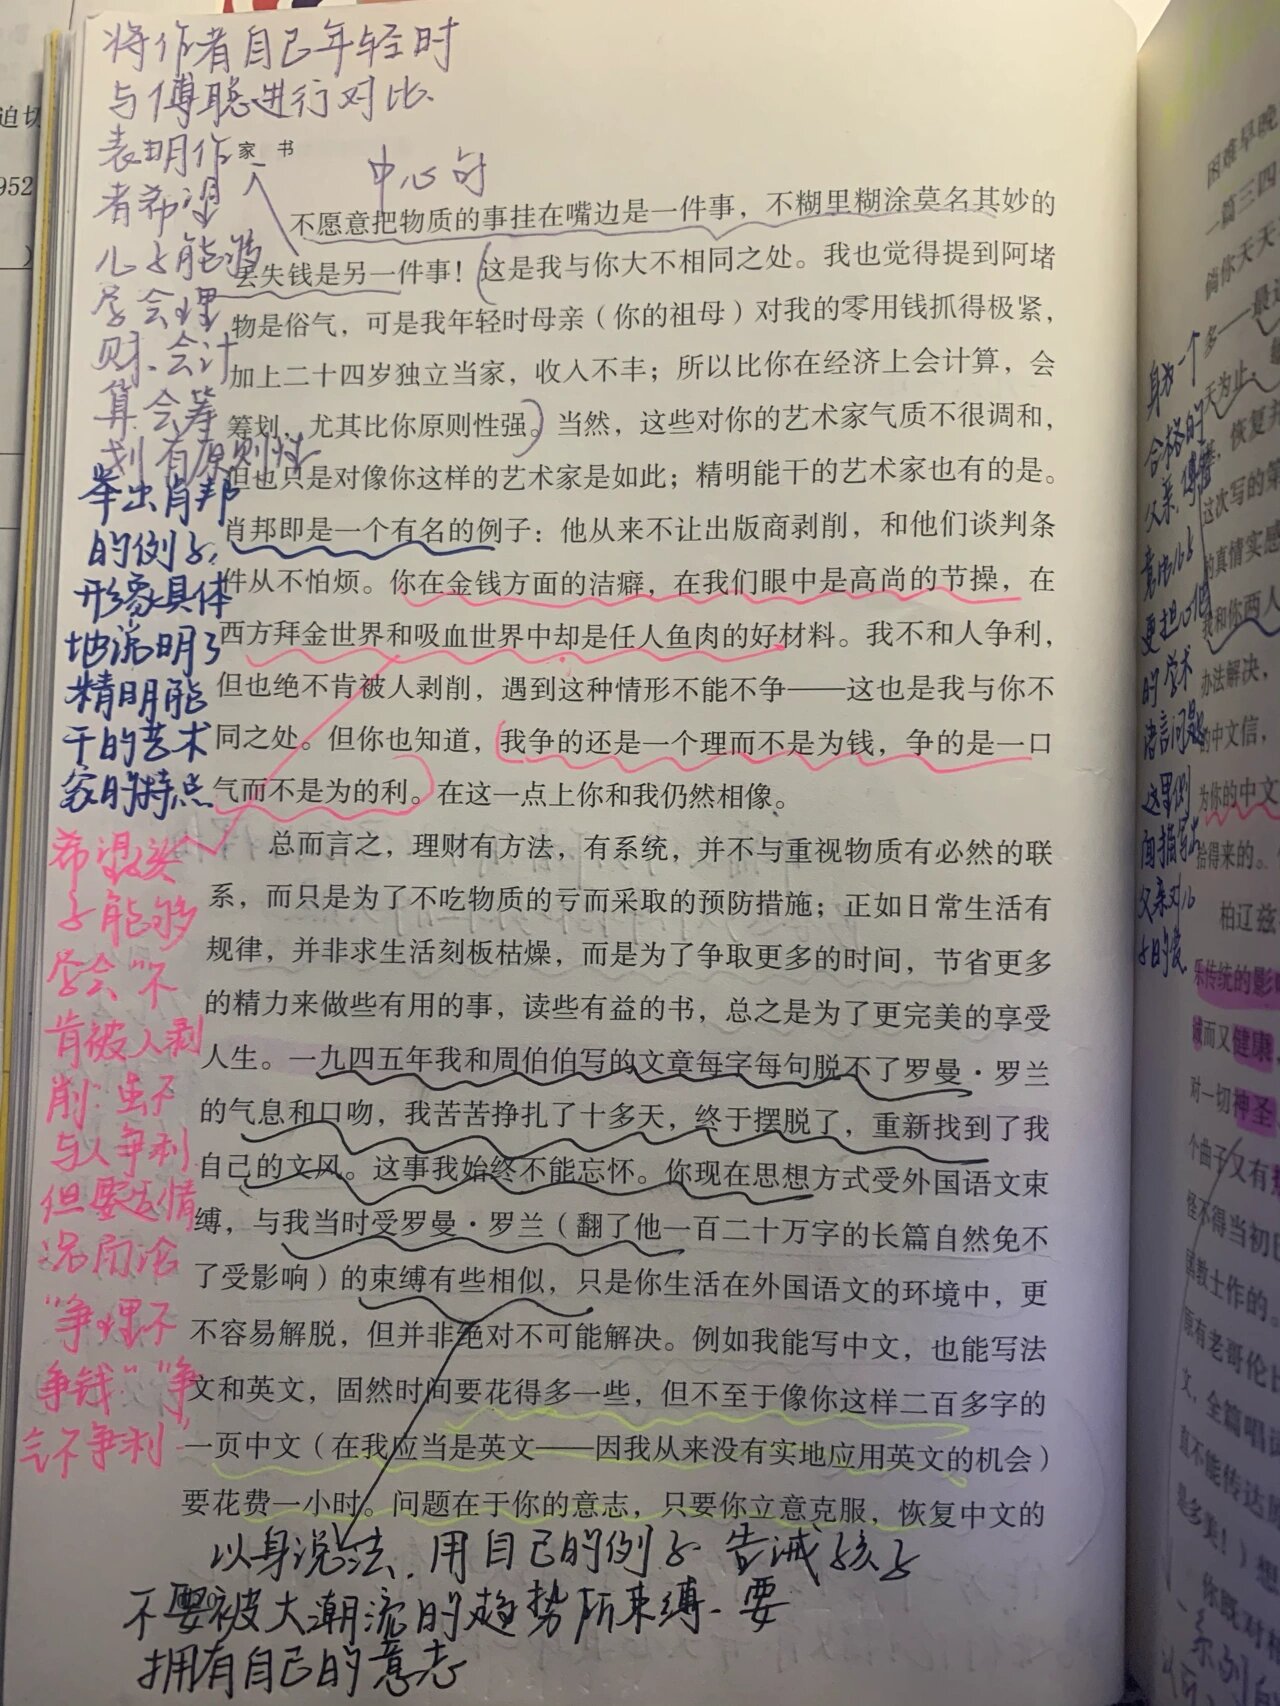 将作者自己年轻时
与傅聪进行对比.
表明作
者希望
儿子能够
学会理
财.会计
算.会筹
划有原则性
家 书
中心句
不愿意把物质的事挂在嘴边是一件事，不糊里糊涂莫名其妙的
丢失钱是另一件事！这是我与你大不相同之处。我也觉得提到阿堵
物是俗气，可是我年轻时母亲（你的祖母）对我的零用钱抓得极紧，
加上二十四岁独立当家，收入不丰；所以比你在经济上会计算，会
筹划，尤其比你原则性强。当然，这些对你的艺术家气质不很调和，
但也只是对像你这样的艺术家是如此；精明能干的艺术家也有的是。
肖邦即是一个有名的例子：他从来不让出版商剥削，和他们谈判条
件从不怕烦。你在金钱方面的洁癖，在我们眼中是高尚的节操，在
西方拜金世界和吸血世界中却是任人鱼肉的好材料。我不和人争利，
但也绝不肯被人剥削，遇到这种情形不能不争——这也是我与你不
同之处。但你也知道，我争的还是一个理而不是为钱，争的是一口
气而不是为的利。在这一点上你和我仍然相像。
总而言之，理财有方法，有系统，并不与重视物质有必然的联
系，而只是为了不吃物质的亏而采取的预防措施；正如日常生活有
规律，并非求生活刻板枯燥，而是为了争取更多的时间，节省更多
的精力来做些有用的事，读些有益的书，总之是为了更完美的享受
人生。一九四五年我和周伯伯写的文章每字每句脱不了罗曼·罗兰
的气息和口吻，我苦苦挣扎了十多天，终于摆脱了，重新找到了我
自己的文风。这事我始终不能忘怀。你现在思想方式受外国语文束
缚，与我当时受罗曼·罗兰（翻了他一百二十万字的长篇自然免不
了受影响）的束缚有些相似，只是你生活在外国语文的环境中，更
不容易解脱，但并非绝对不可能解决。例如我能写中文，也能写法
文和英文，固然时间要花得多一些，但不至于像你这样二百多字的
一页中文（在我应当是英文——因我从来没有实地应用英文的机会）
要花费一小时。问题在于你的意志，只要你立意克服，恢复中文的
举出肖邦
的例子,
形象具体
地说明了
精明能
干的艺术
家的特点
希望孩
子能够
学会"不
肯被人剥
削.虽不
与人争利
但要看情
况而论
"争理不
争钱""争
气不争利"
以身说法.用自己的例子告诫孩子
不要被大潮流的趋势所束缚.要
拥有自己的意志
迫切
952
)
困难早晚
一篇三四
倘你天天
多——最
天为止.
恢复
这次写的第
的真情实感
我和你两人
办法解决，
的中文信，
为你的中文
拾得来的。
柏辽兹
乐传统的影
诚而又健康
对一切神圣
个曲子又有
怪不得当初
属教士作的。
原有老哥伦
文，全篇唱
直不能传达
是多美！）想
你既对
身为一个
合格的
父亲,傅雷
更担心他
的学术
语言问题
这里侧
面描写出
父亲对儿
子的爱
一系列